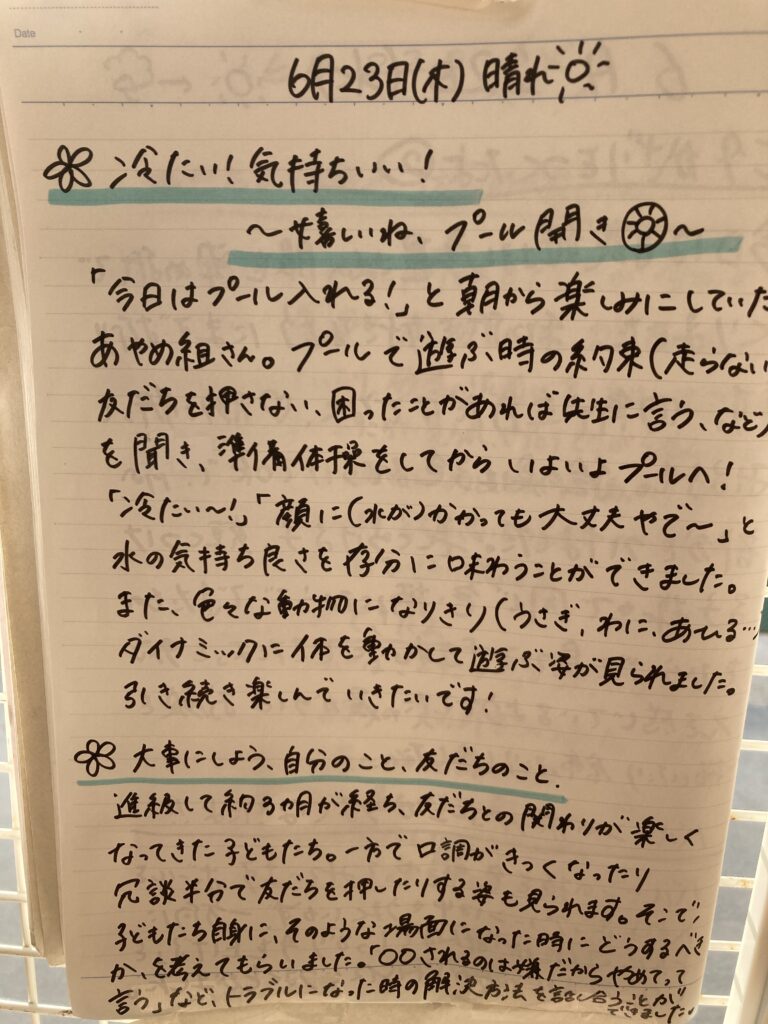 Date
6月23日(木) 晴れ
冷たい！気持ちいい！
～嬉しいね、プール開き～
「今日はプール入れる！」と朝から楽しみにしていた
あやめ組さん。プールで遊ぶ時の約束(走らない
友だちを押さない、困ったことがあれば先生に言う、など)
を聞き、準備体操をしてからいよいよプールへ！
「冷たい～！」「顔に(水が)かかっても大丈夫やで～」と
水の気持ち良さを存分に味わうことができました。
また、色々な動物になりきり(うさぎ、わに、あひる…
ダイナミックに体を動かして遊ぶ姿が見られました。
引き続き楽しんでいきたいです！
大事にしよう、自分のこと、友だちのこと.
進級して約3ヵ月が経ち、友だちとの関わりが楽しく
なってきた子どもたち。一方で口調がきつくなったり
冗談半分で友だちを押したりする姿も見られます。そこで
子どもたち自身に、そのような場面になった時にどうするべき
か、を考えてもらいました。「〇〇されるのは嫌だからやめてって
言う」など、トラブルになった時の解決方法を話し合うことが
できました